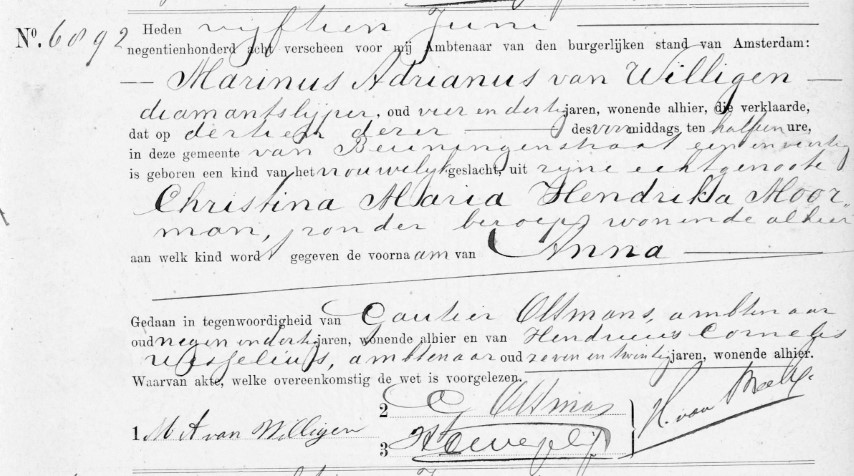 Nº. 6892
Heden vijftien Juni
negentienhonderd acht verscheen voor mij Ambtenaar van den burgerlijken stand van Amsterdam:
— Marinus Adrianus van Willigen —
diamantslijper, oud vier en dertig jaren, wonende alhier, die verklaarde,
dat op dertien dezer — des voormiddags ten half een ure,
in deze gemeente van Beuningenstraat een en veertig
is geboren een kind van het vrouwelijk geslacht, uit zijne echtgenoote
Christina Maria Hendrika Moor-
man, zonder beroep, wonende alhier
aan welk kind word gegeven de voornaam van Anna —
Gedaan in tegenwoordigheid van Gautier Oltmans, ambtenaar
oud negen en dertig jaren, wonende alhier en van Hendricus Cornelis
Wesselius, ambtenaar oud zeven en twintig jaren, wonende alhier.
Waarvan akte, welke overeenkomstig de wet is voorgelezen.
1 M A van Willigen
2 G Oltmans
3
H. van